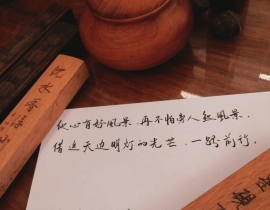 沉水香
心有好风景，再不怕旁人煞風景，
借天边明灯的光芒，一路前行。